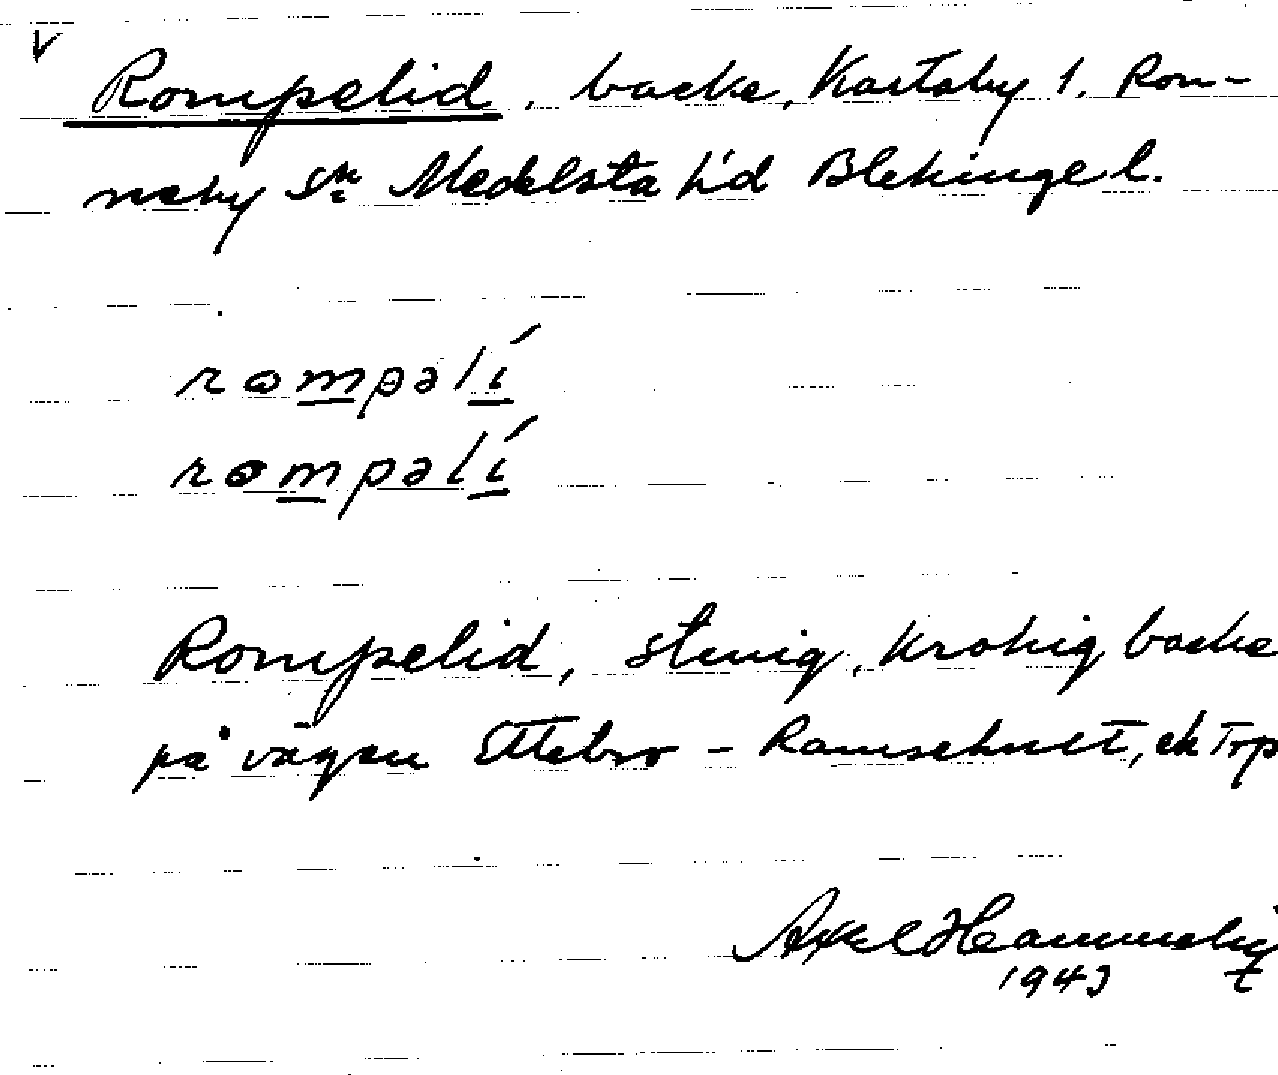 V
Rompelid, backe, Kartaby 1. Ron-
neby sn Medelsta hd Blekinge l.
rompəlí
rompəlí
Rompelid, stenig, krokig backe
på vägen Ettebro - Ramsehult, ek Trp
Axel Hammeby
1943